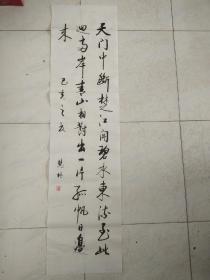 天门中断楚江开碧水东流至此
迴两岸青山相对出一片孤帆日边
来
己亥之夏